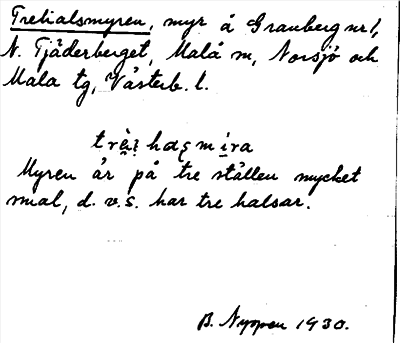 Trehalsmyren, myr å Granberg nr 1,
N. Tjäderberget, Malå sn, Norsjö och
Mala tg, Västerb. l.
trè̱i hɑʂ mi̱ra
Myren är på tre ställen mycket
smal, d.v.s. har tre halsar.
B. Nyman 1930.